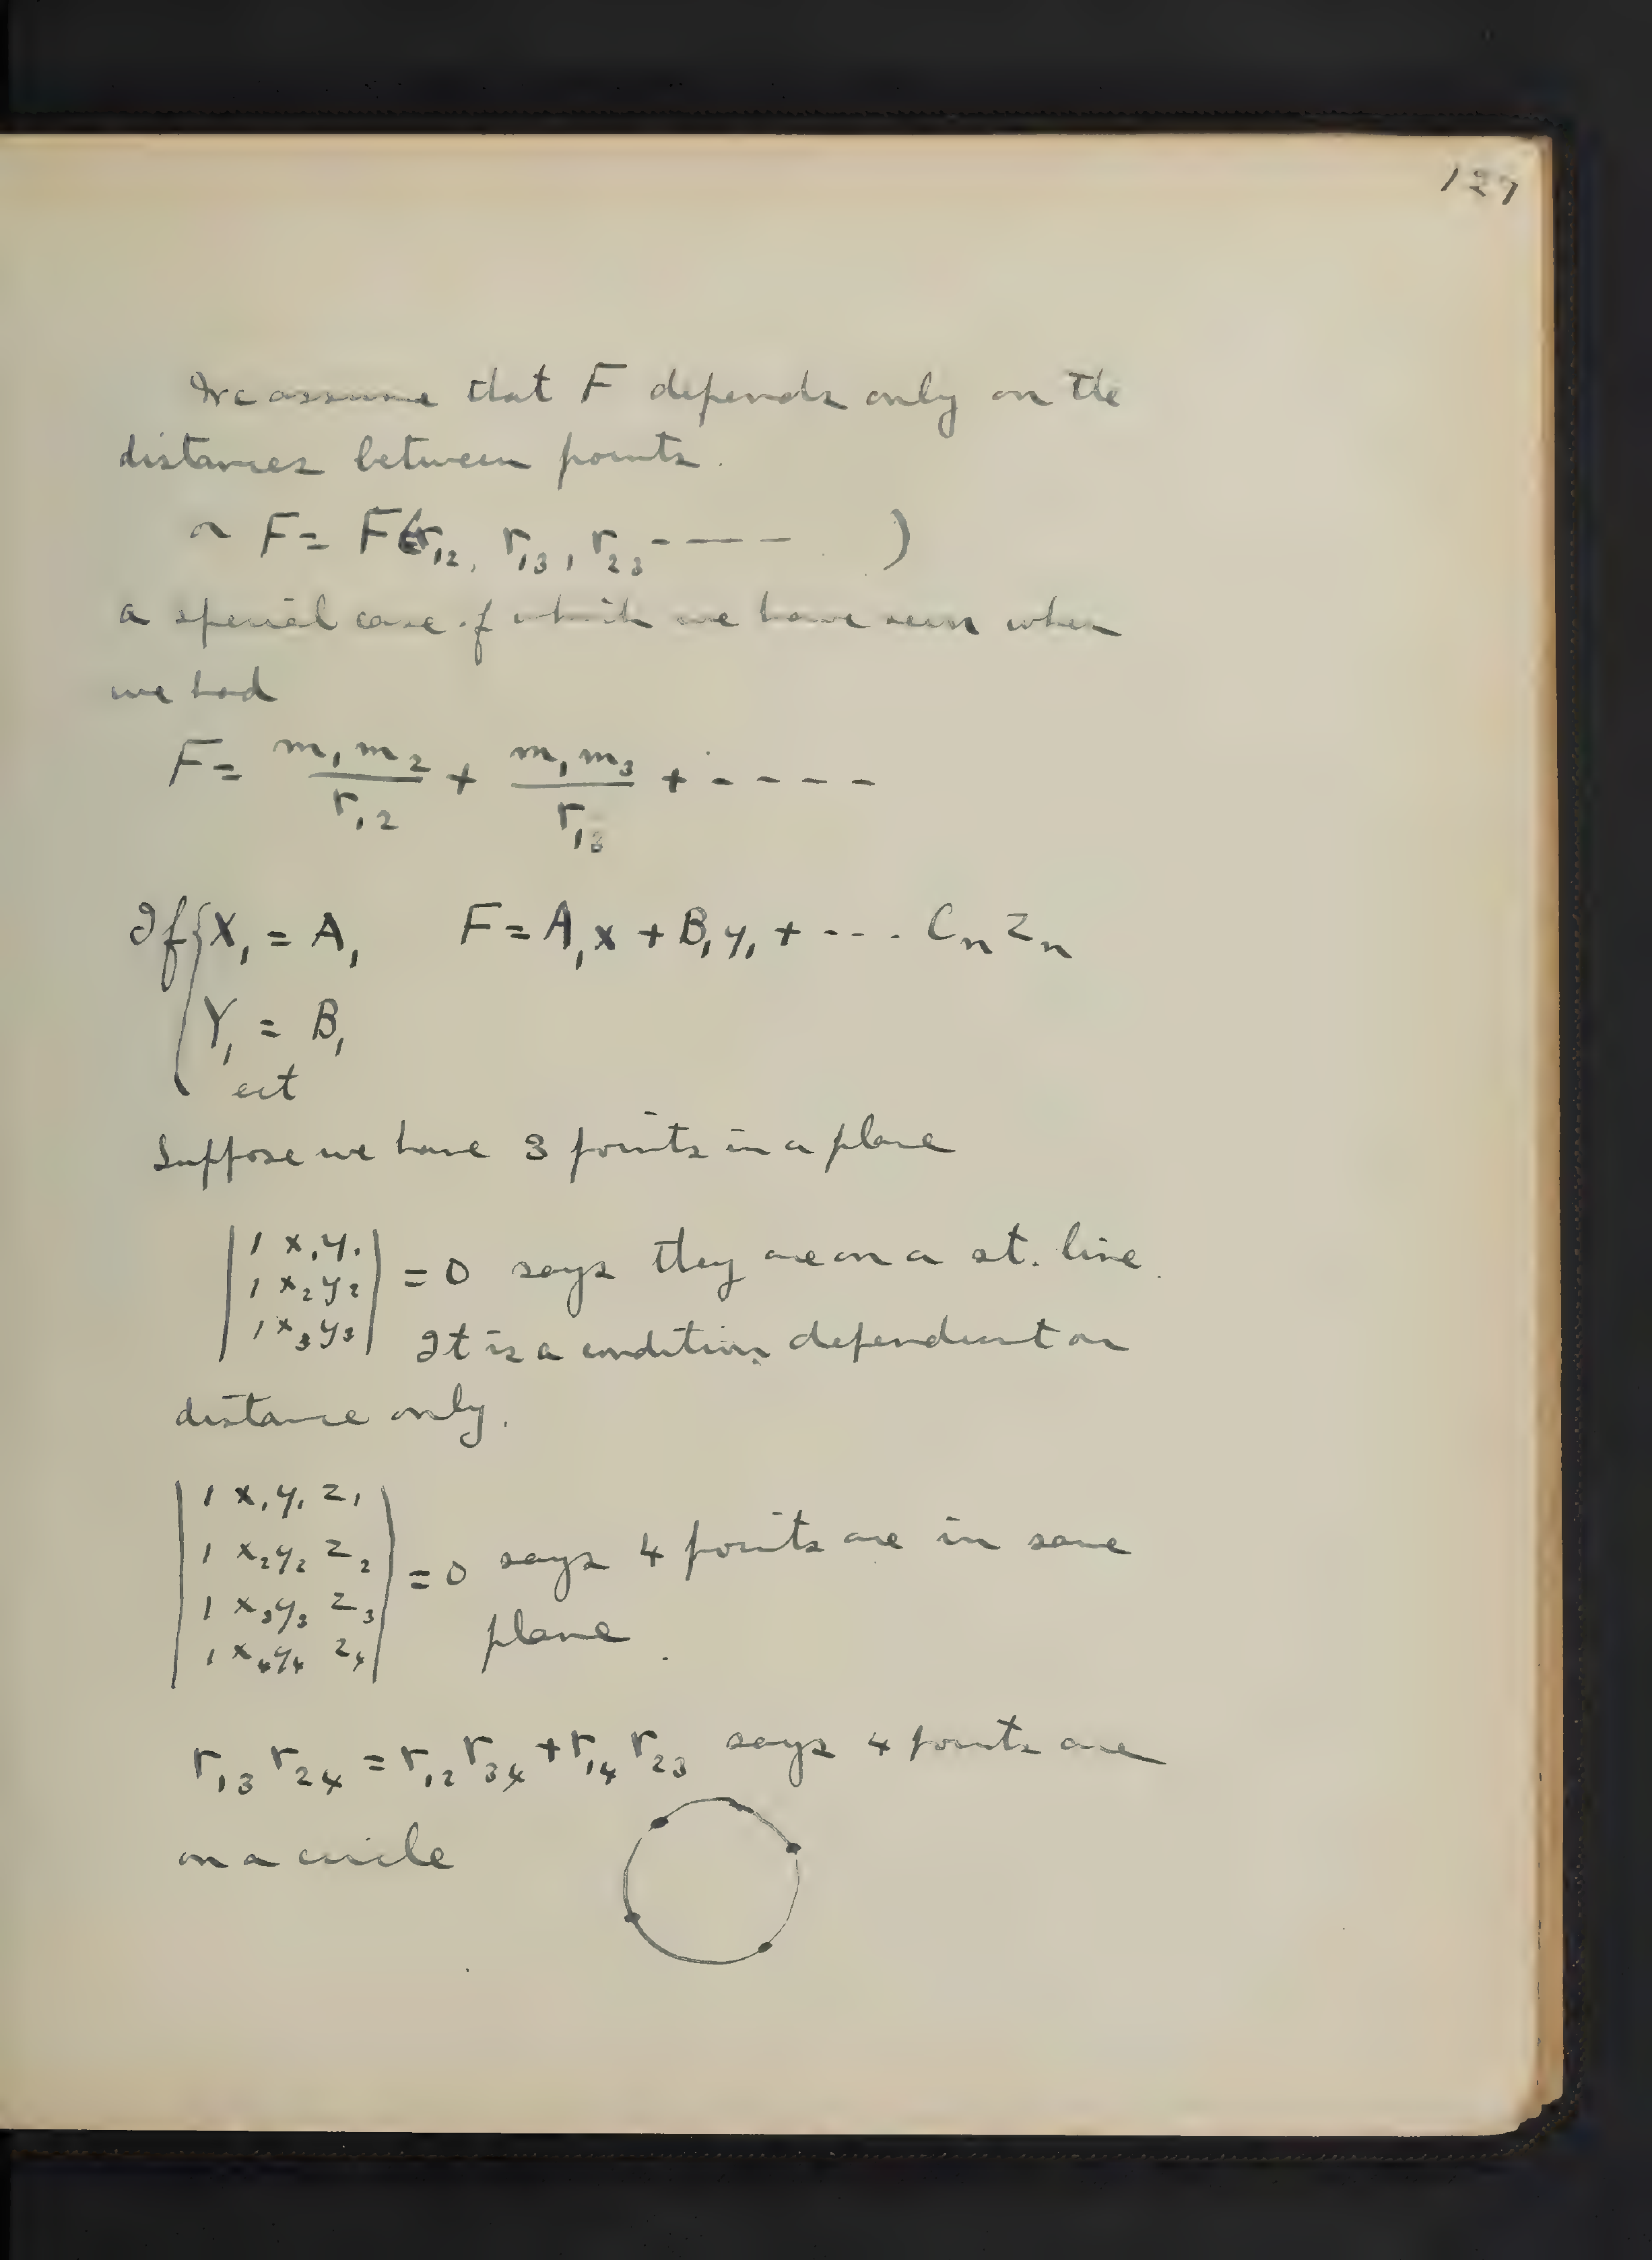 127
We assume that F depends only on the
distances between points.
or F = F(r₁₂, r₁₃, r₂₃ ---- )
a special case of which we have seen when
we had
F = m₁m₂/r₁₂ + m₁m₃/r₁₃ + - - - -
If { X₁ = A₁ F = A₁x + B₁y₁ + --- Cₙzₙ
Y₁ = B₁
ect
Suppose we have 3 points in a plane
| 1 x₁ y₁ |
| 1 x₂ y₂ | = 0 says they are on a st. line.
| 1 x₃ y₃ | It is a condition dependent on
distance only.
| 1 x₁ y₁ z₁ |
| 1 x₂ y₂ z₂ | = 0 says 4 points are in same
| 1 x₃ y₃ z₃ | plane.
| 1 x₄ y₄ z₄ |
r₁₃ r₂₄ = r₁₂ r₃₄ + r₁₄ r₂₃ says 4 points are
on a circle